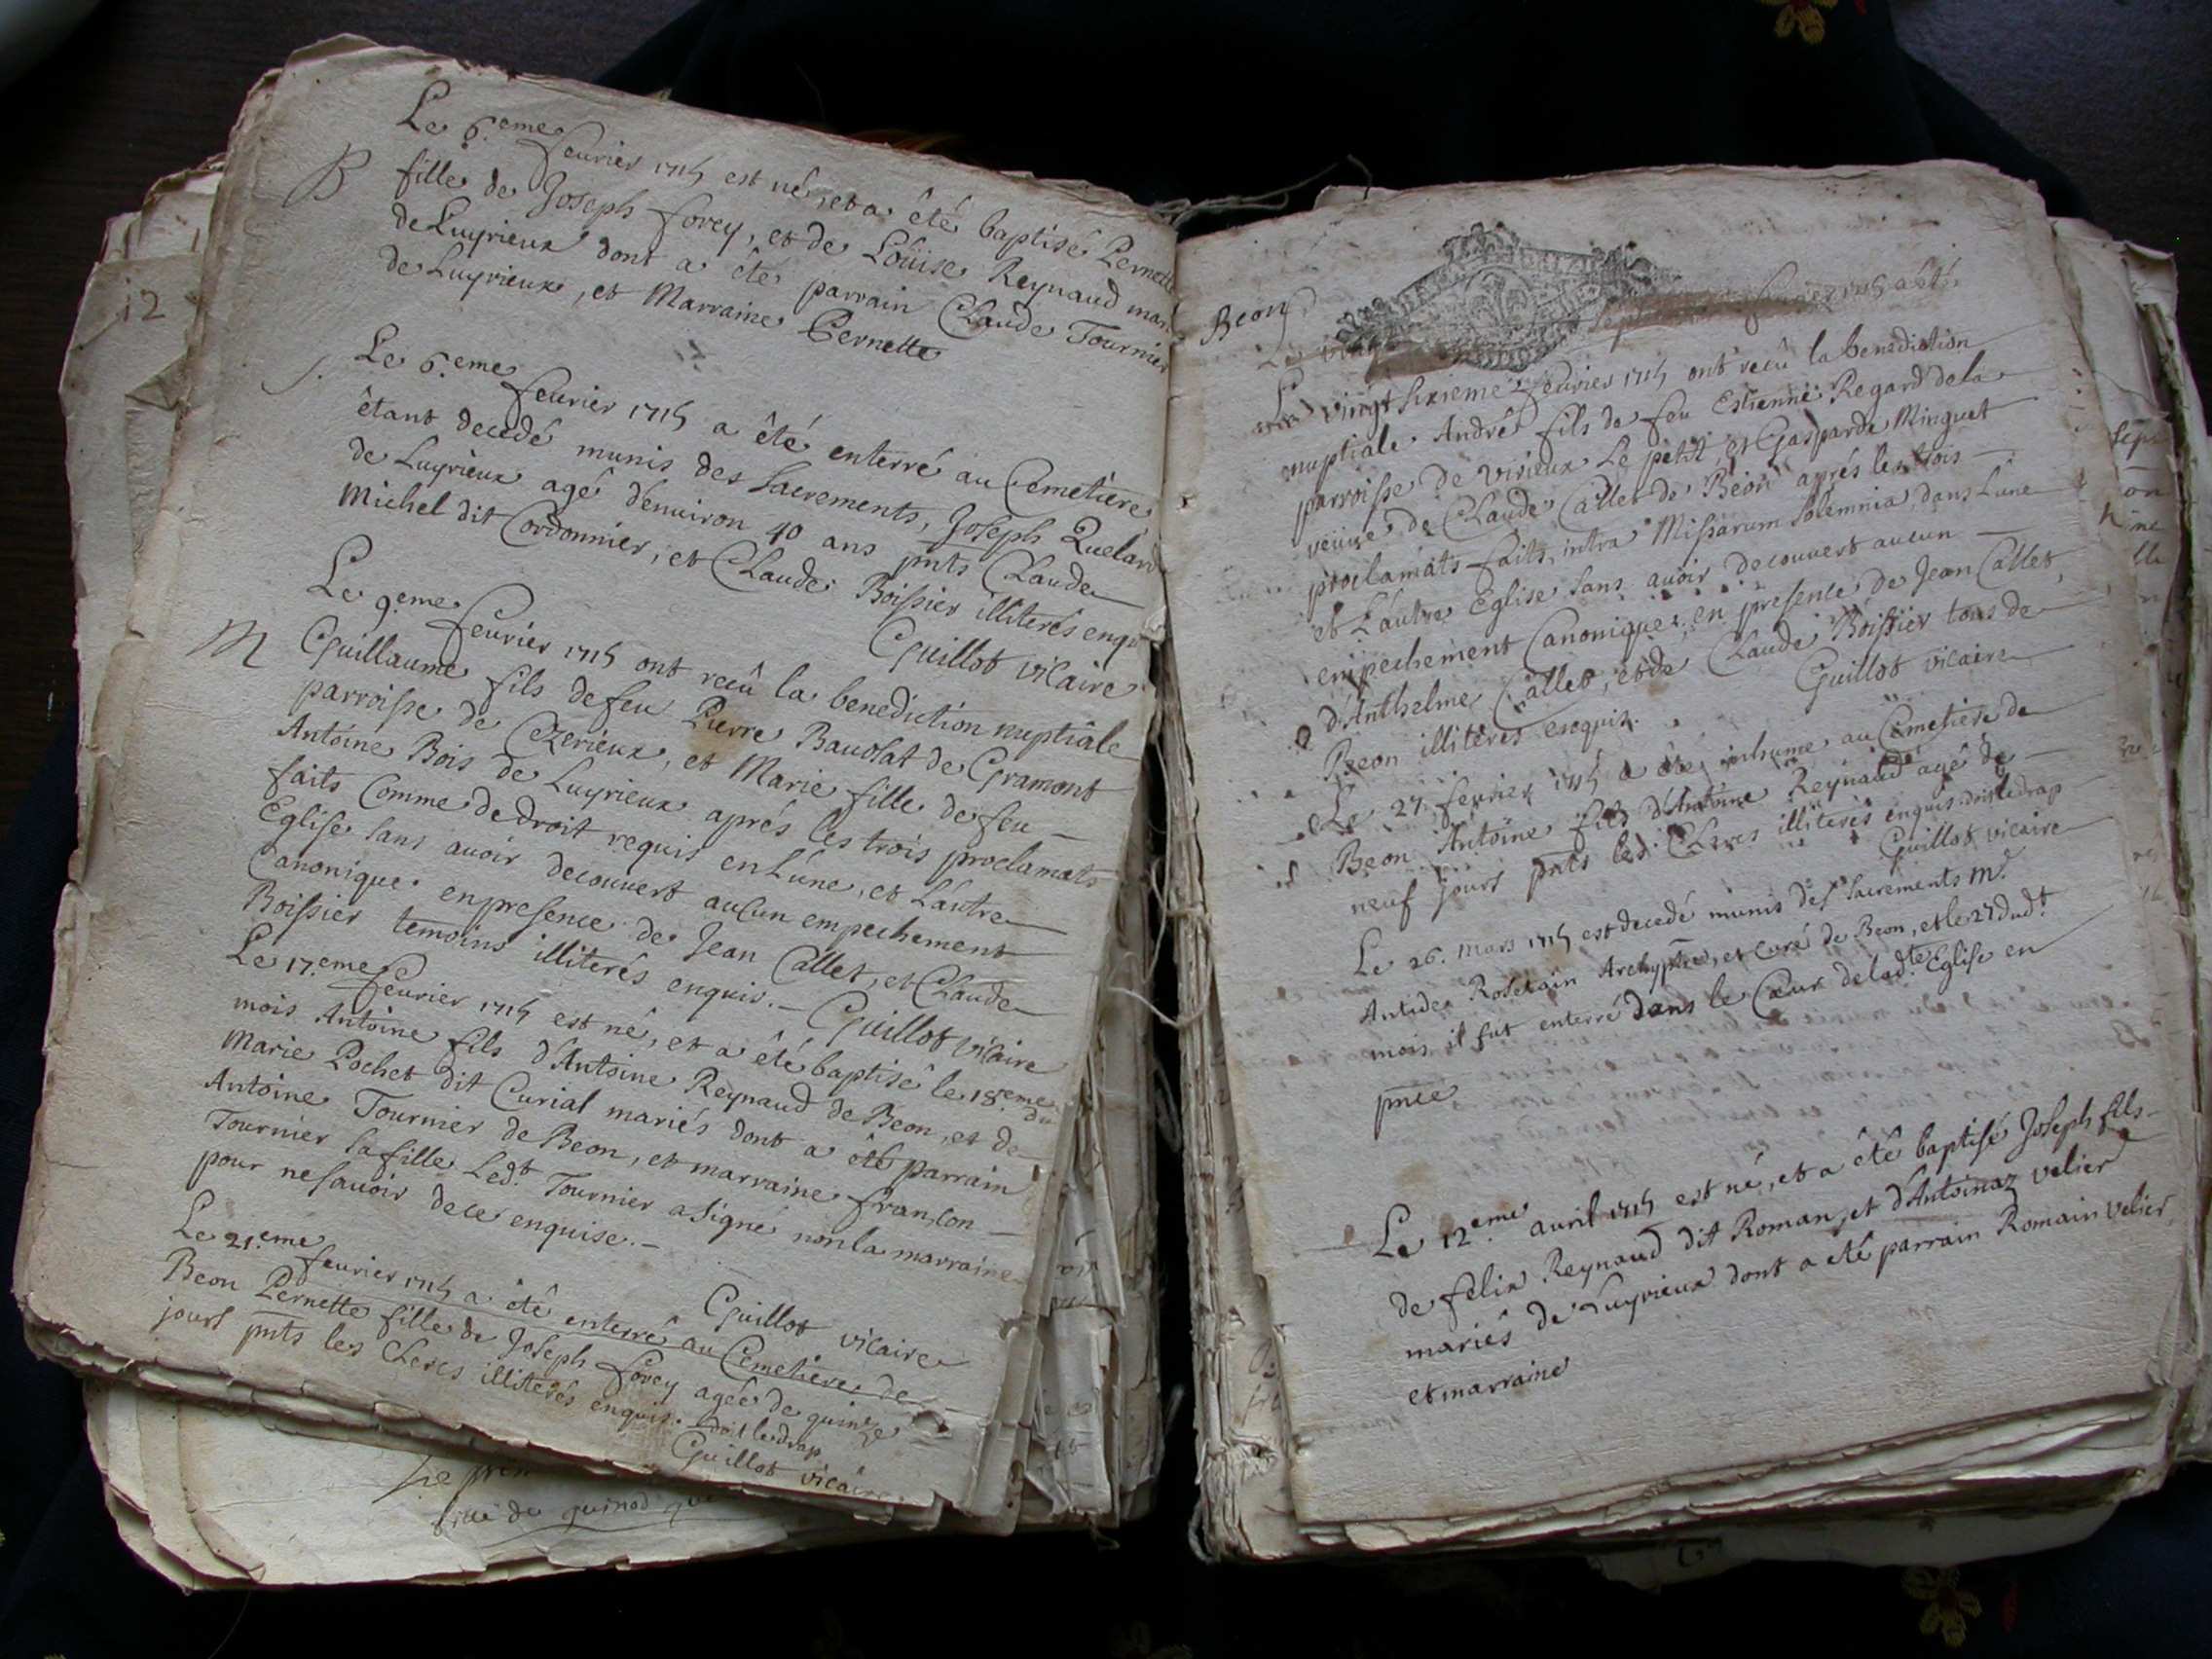 Le 6.eme feurier 1715 est né, et a été baptisé Pernette
B
fille de Joseph forey, et de Loüise Reynaud mariés
de Luyrieux dont a été parrain Claude Tournier
de Luyrieux, et Marraine Pernette
Le 6.eme feurier 1715 a été enterré au Cemetiere
étant decedé munis des sacrements, Joseph Quelard
de Luyrieux agé denuiron 40 ans pnts Claude
Michel dit Cordonnier, et Claude Boissier illiterés enquis
Guillot vicaire
Le 9.eme feurier 1715 ont recû la benediction nuptiale
M
Guillaume fils de feu Pierre Baudat de Gramont
parroisse de Cezerieux, et Marie fille de feu
Antoine Bois de Luyrieux aprés les trois proclamats
faits Comme de droit requis en L'une, et L'autre
Eglise sans auoir decouuert aucun empechement
Canonique en presence de Jean Callet, et Claude
Boissier temoins illiterés enquis. Guillot vicaire
Le 17.eme feurier 1715 est né, et a été baptisé le 18.eme du
mois Antoine fils d'Antoine Reynaud de Beon, et de
Marie Pochet dit Curial mariés dont a été parrain
Antoine Tournier de Beon, et marraine françon
Tournier sa fille Led.t Tournier a signé non la marraine
pour ne sauoir de ce enquise.
Guillot vicaire
Le 21.eme feurier 1715 a été enterré au Cemetiere de
Beon Pernette fille de Joseph forey ageé de quinze
jours pnts les Clercs illiterés enquis. doit le drap
Guillot vicaire
Beon
Le vingt sixieme feurier 1715 ont recû la benediction
nuptiale André fils de feu Estienne Regard de la
parroisse de virieux Le petit, et Gasparde Minguet
veuue de Claude Callet de Beon aprés les trois
proclamats faits, intra Missarum solemnia, dans L'une
et L'autre Eglise sans auoir decouuert aucun
empechement Canonique en presence de Jean Callet,
d'Anthelme Callet, et de Claude Boissier tous de
Beon illiterés enquis. Guillot vicaire
Le 27. feurier 1715 a été inhumé au Cemetiere de
Beon Antoine fils d'Antoine Reynaud agé de
neuf jours pnts les Clercs illiterés enquis doit le drap
Guillot vicaire
Le 26. mars 1715 est decedé munis des sacrements M.
Antide Rosetain Archyptre, et curé de Beon, et le 27 dud.t
mois il fut enterré dans le Cœur de lad.te Eglise en
pnce
Le 12.eme auril 1715 est né, et a été baptisé Joseph fils
de felix Reynaud dit Roman, et d'Antoinaz velier
mariés de Luyrieux dont a été parrain Romain velier
et marraine